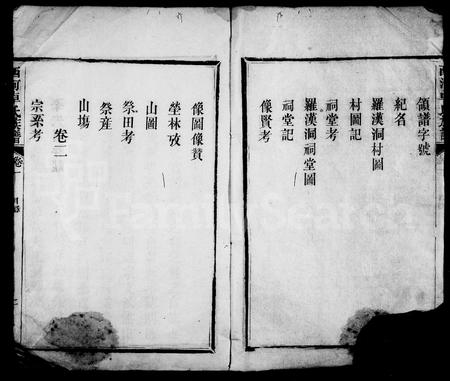 領譜字號
紀名
羅漢洞村圖
村圖記
祠堂考
羅漢洞祠堂圖
祠堂記
像賢考
像圖像贊
塋林攷
山圖
祭田考
祭產
山塲
卷二
宗系考
卷一
FamilySearch